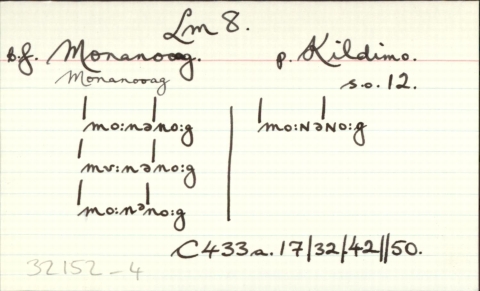 Lm 8.
s.f. Monanooag. p. Kildimo.
Monanooag s.o. 12.
ˈmoːnəˈnoːg ˈmoːNəˈNoːg
ˈmvːnəˈnoːg
ˈmoːnəˈnoːg
C433a. 17/32/.42//50.
32152-4